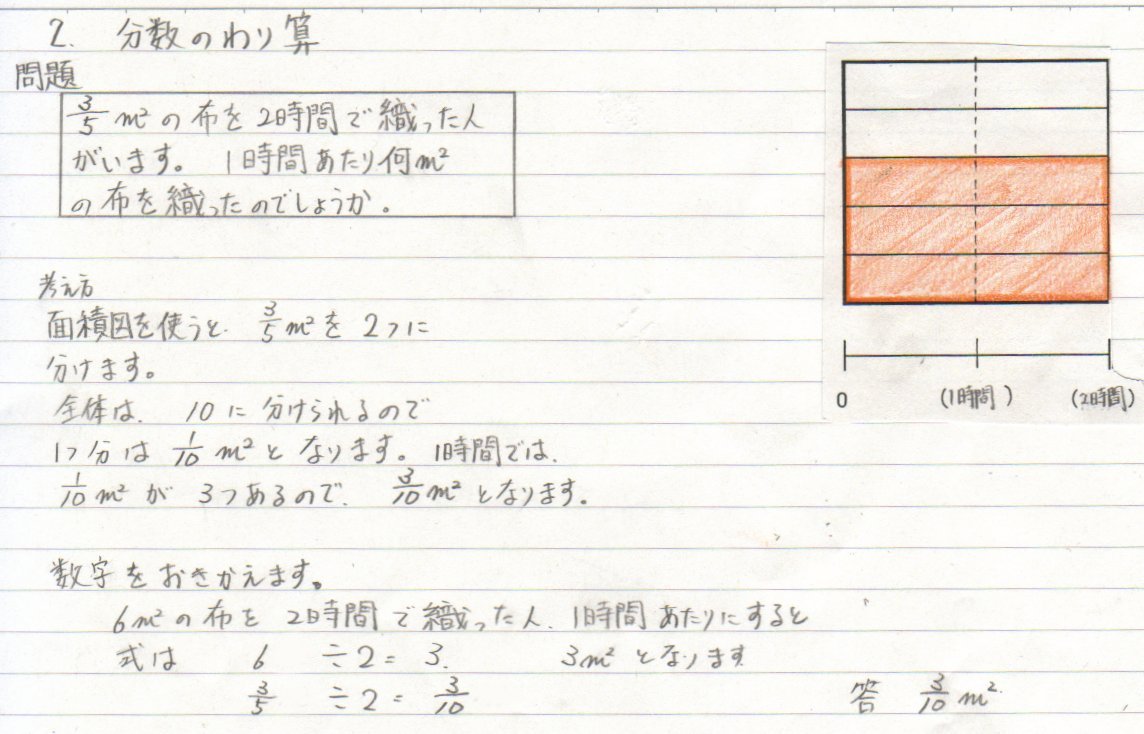 2. 分数のわり算
問題
3/5 m² の布を 2時間で織った人
がいます。 1時間あたり何m²
の布を織ったのでしょうか。
0 (1時間) (2時間)
考え方
面積図を使うと、 3/5 m² を 2つに
分けます。
全体は、 10 に分けられるので
1つ分は 1/10 m² となります。 1時間では、
1/10 m² が 3つあるので、 3/10 m² となります。
数字をおきかえます。
6m² の布を 2時間で織った人、1時間あたりにすると
式は 6 ÷2 = 3. 3m² となります
3/5 ÷2 = 3/10 答 3/10 m²